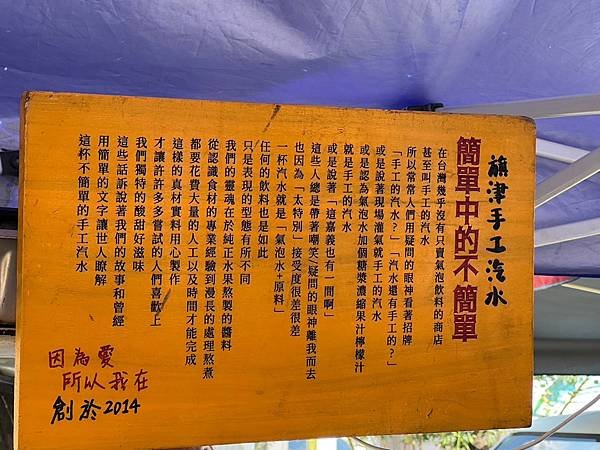 旗津手工汽水
簡單中的不簡單
在台灣幾乎沒有只賣氣泡飲料的商店
甚至叫手工的汽水
所以常常人們用疑問的眼神看著招牌
「手工的汽水?」「汽水還有手工的?」
或是說著現場灌氣就手工的汽水
或是認為氣泡水加個糖漿濃縮果汁檸檬汁
就是手工的汽水
或是說著「這嘉義也有一間啊」
這些人總是帶著嘲笑/疑問的眼神離我而去
也因為「太特別」接受度很差很差
一杯汽水就是「氣泡水+原料」
任何的飲料也是如此
只是表現的型態有所不同
我們的靈魂在於純正水果熬製的醬料
從認識食材的專業經驗到漫長的處理熬煮
都要花費大量的人工以及時間才能完成
這樣的真材實料用心製作
才讓許許多多嘗試的人們喜歡上
我們獨特的酸甜好滋味
這些話訴說著我們的故事和曾經
用簡單的文字讓世人瞭解
這杯不簡單的手工汽水
因為愛
所以我在
創於2014